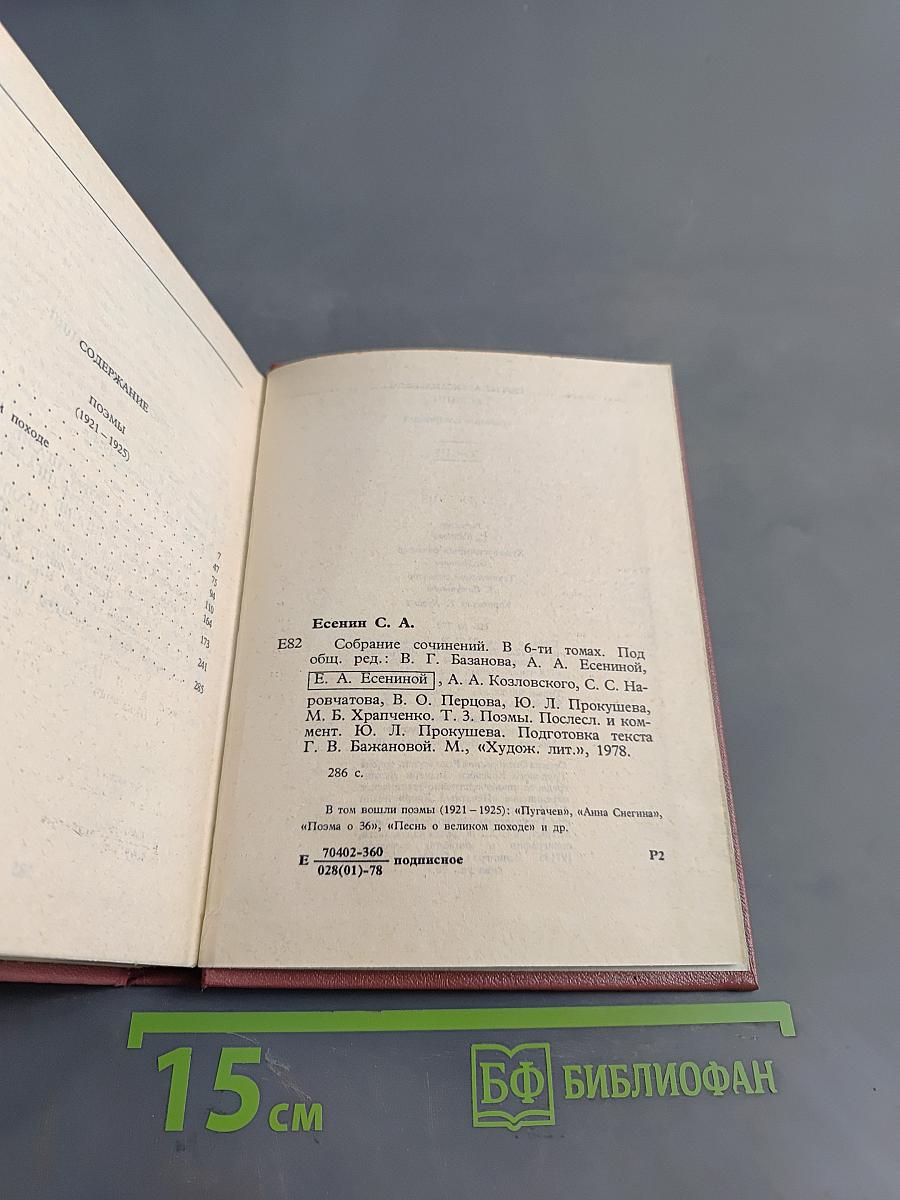 СОДЕРЖАНИЕ
ПОЭМЫ
(1921–1925)
походе
7
47
75
94
110
164
173
241
285
Есенин С. А.
Е82 Собрание сочинений. В 6-ти томах. Под
общ. ред.: В. Г. Базанова, А. А. Есениной,
Е. А. Есениной, А. А. Козловского, С. С. На-
ровчатова, В. О. Перцова, Ю. Л. Прокушева,
М. Б. Храпченко. Т. 3. Поэмы. Послесл. и ком-
мент. Ю. Л. Прокушева. Подготовка текста
Г. В. Бажановой. М., «Худож. лит.», 1978.
286 с.
В том вошли поэмы (1921–1925): «Пугачев», «Анна Снегина»,
«Поэма о 36», «Песнь о великом походе» и др.
Е 70402-360 подписное Р2
028(01)-78
15 см БФ БИБЛИОФАН